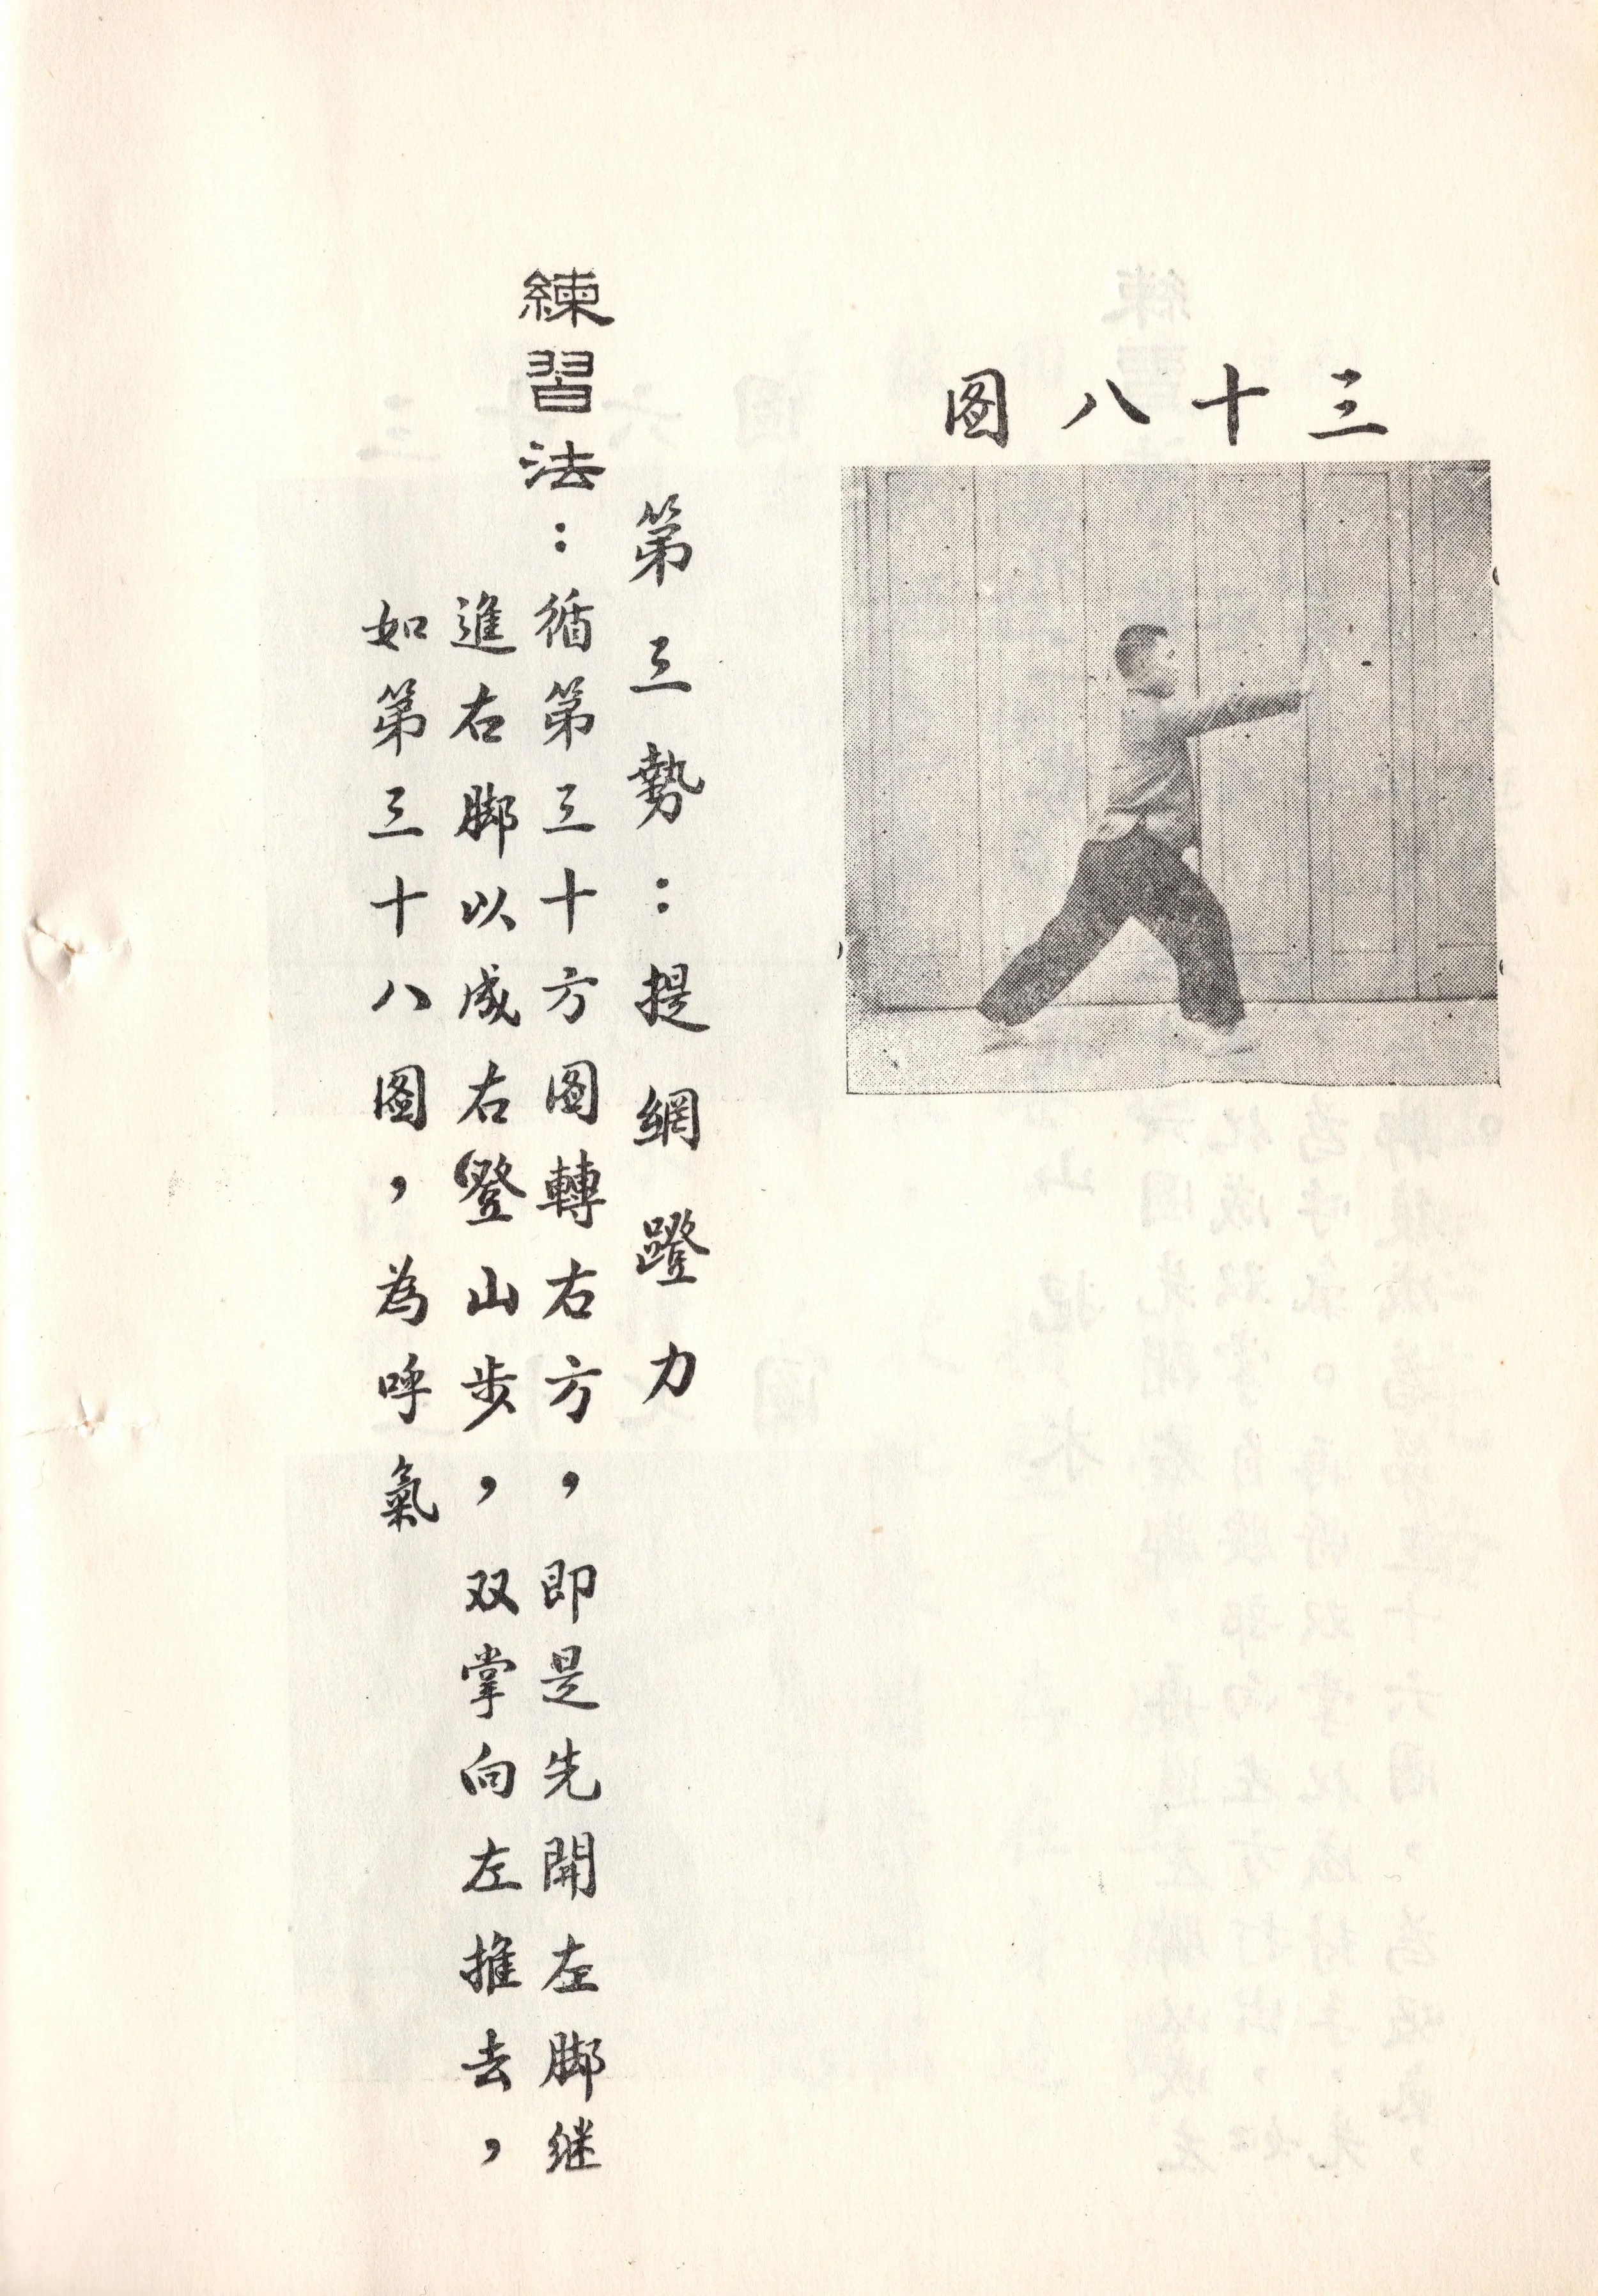 三十八图
第三勢：提網蹬力
練習法：循第三十方图轉右方，即是先開左脚继
進右脚以成右登山步，双掌向左推去，
如第三十八图，為呼氣